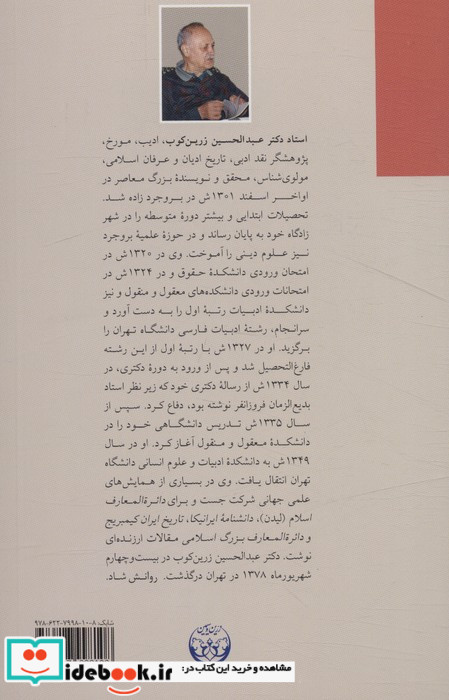 استاد دکتر عبدالحسین زرین‌کوب، ادیب، مورخ،
پژوهشگر نقد ادبی، تاریخ ادیان و عرفان اسلامی،
مولوی‌شناس، محقق و نویسندهٔ بزرگ معاصر در
اواخر اسفند ۱۳۰۱ش در بروجرد زاده شد.
تحصیلات ابتدایی و بیشتر دورهٔ متوسطه را در شهر
زادگاه خود به پایان رساند و در حوزهٔ علمیهٔ بروجرد
نیز علوم دینی را آموخت. وی در ۱۳۲۰ش در
امتحان ورودی دانشکدهٔ حقوق و در ۱۳۲۴ش در
امتحانات ورودی دانشکده‌های معقول و منقول و نیز
دانشکدهٔ ادبیات رتبهٔ اول را به دست آورد و
سرانجام، رشتهٔ ادبیات فارسی دانشگاه تهران را
برگزید. او در ۱۳۲۷ش با رتبهٔ اول از این رشته
فارغ‌التحصیل شد و پس از ورود به دورهٔ دکتری، در
سال ۱۳۳۴ش از رسالهٔ دکتری خود که زیر نظر استاد
بدیع‌الزمان فروزانفر نوشته بود، دفاع کرد. سپس از
سال ۱۳۳۵ش تدریس دانشگاهی خود را در
دانشکدهٔ معقول و منقول آغاز کرد. او در سال
۱۳۴۹ش به دانشکدهٔ ادبیات و علوم انسانی دانشگاه
تهران انتقال یافت. وی در بسیاری از همایش‌های
علمی جهانی شرکت جست و برای دائرةالمعارف
اسلام (لیدن)، دانشنامهٔ ایرانیکا، تاریخ ایران کیمبریج
و دائرةالمعارف بزرگ اسلامی مقالات ارزنده‌ای
نوشت. دکتر عبدالحسین زرین‌کوب در بیست‌وچهارم
شهریورماه ۱۳۷۸ در تهران درگذشت. روانش شاد.
شابک: ۸-۱۰-۷۹۹۸-۶۲۲-۹۷۸
iidebook.ir
مشاهده و خرید این کتاب در: